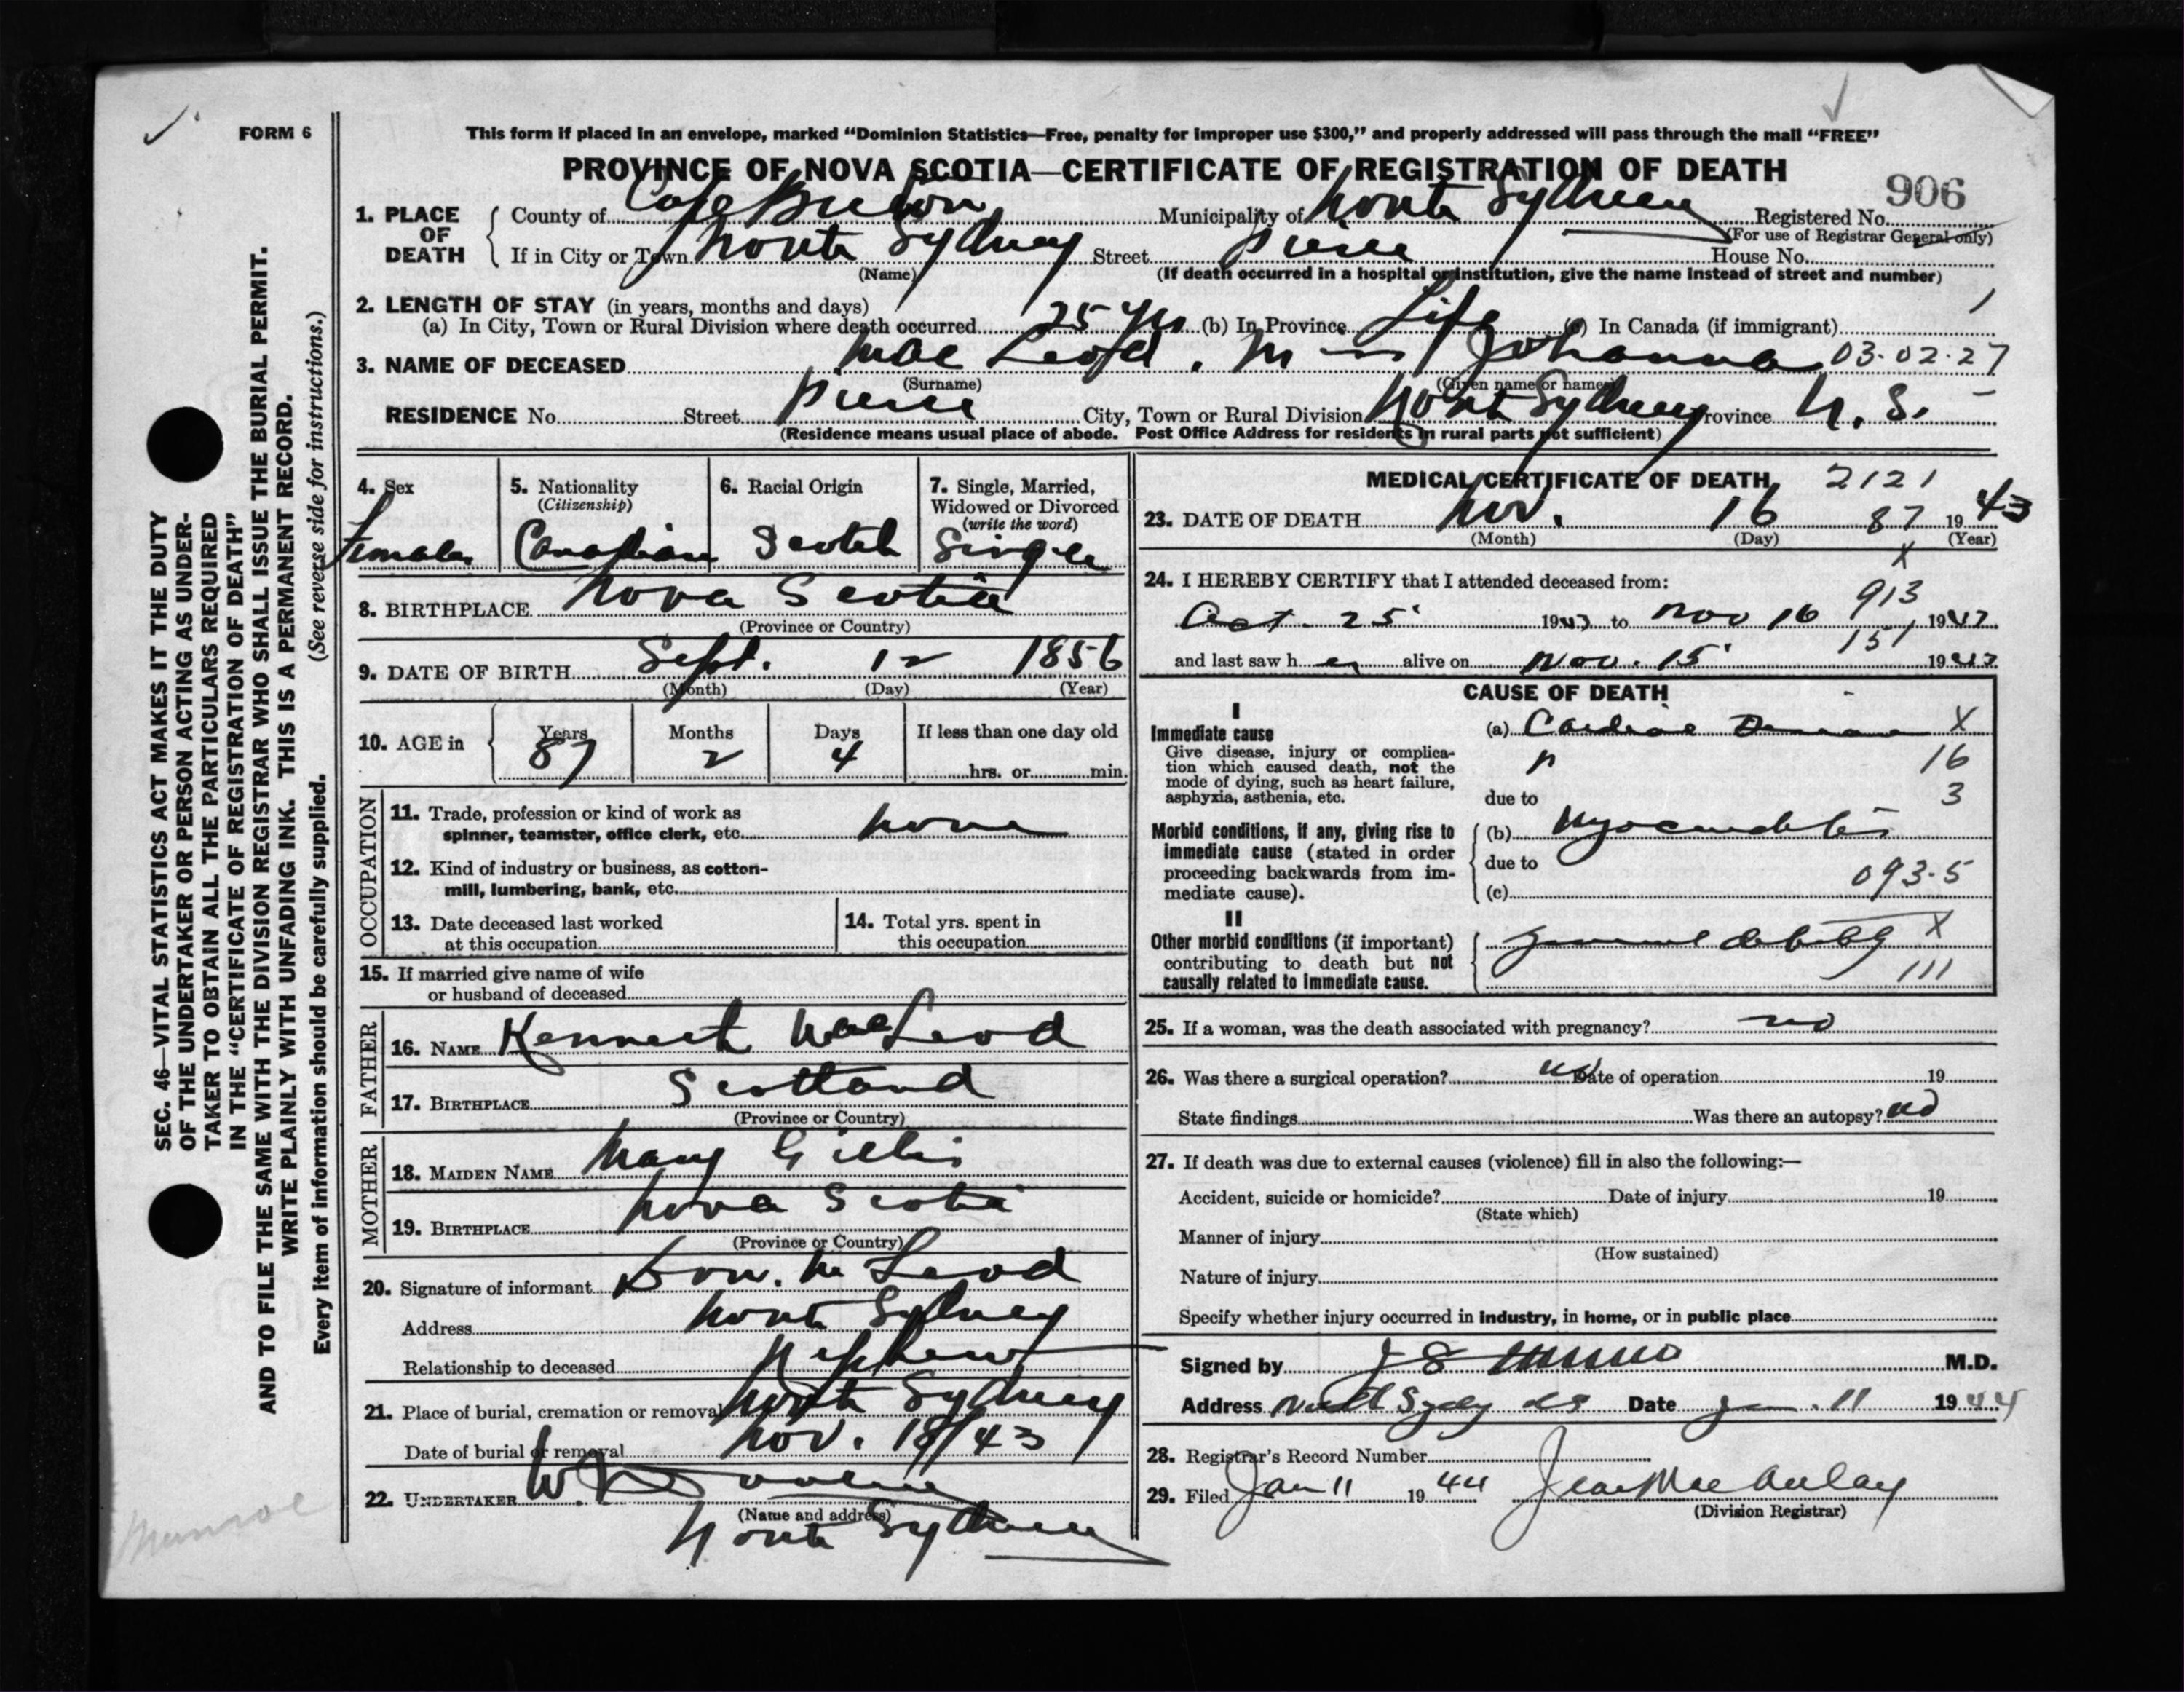 FORM 6
This form if placed in an envelope, marked “Dominion Statistics—Free, penalty for improper use $300,” and properly addressed will pass through the mail “FREE”
PROVINCE OF NOVA SCOTIA—CERTIFICATE OF REGISTRATION OF DEATH
906
1. PLACE OF DEATH
County of Cape Breton Municipality of North Sydney Registered No.
(For use of Registrar General only)
If in City or Town North Sydney Street Pierce House No.
(Name) (If death occurred in a hospital or institution, give the name instead of street and number)
2. LENGTH OF STAY (in years, months and days)
(a) In City, Town or Rural Division where death occurred 25 yrs (b) In Province Life (c) In Canada (if immigrant)
3. NAME OF DECEASED MacLeod, Johanna 03-02-27
(Surname) (Given name or names)
RESIDENCE No. Street Pierce City, Town or Rural Division North Sydney Province N. S.
(Residence means usual place of abode. Post Office Address for residents in rural parts not sufficient)
4. Sex
Female
5. Nationality
(Citizenship)
Canadian
6. Racial Origin
Scotch
7. Single, Married,
Widowed or Divorced
(write the word)
Single
8. BIRTHPLACE Nova Scotia
(Province or Country)
9. DATE OF BIRTH Sept. 12 1856
(Month) (Day) (Year)
10. AGE in
Years Months Days If less than one day old
87 2 4
hrs. or min.
OCCUPATION
11. Trade, profession or kind of work as
spinner, teamster, office clerk, etc. none
12. Kind of industry or business, as cotton-
mill, lumbering, bank, etc.
13. Date deceased last worked
at this occupation
14. Total yrs. spent in
this occupation
15. If married give name of wife
or husband of deceased
FATHER
16. NAME Kenneth MacLeod
17. BIRTHPLACE Scotland
(Province or Country)
MOTHER
18. MAIDEN NAME Mary Gillis
19. BIRTHPLACE Nova Scotia
(Province or Country)
20. Signature of informant Mc Leod
Address North Sydney
Relationship to deceased Nephew
21. Place of burial, cremation or removal North Sydney
Date of burial or removal Nov. 18/43
22. UNDERTAKER
(Name and address)
North Sydney
MEDICAL CERTIFICATE OF DEATH 2121
23. DATE OF DEATH Nov. 16 87 1943
(Month) (Day) (Year)
X
24. I HEREBY CERTIFY that I attended deceased from:
913
Oct. 25 1943 to Nov 16 1943
151
and last saw her alive on Nov. 15 1943
CAUSE OF DEATH
I
Immediate cause
Give disease, injury or complica-
tion which caused death, not the
mode of dying, such as heart failure,
asphyxia, asthenia, etc.
(a) Cardiac X
16
due to 3
Morbid conditions, if any, giving rise to
immediate cause (stated in order
proceeding backwards from im-
mediate cause).
(b) Myocarditis
due to
093.5
(c)
II
Other morbid conditions (if important)
contributing to death but not
causally related to immediate cause.
General debility X
111
25. If a woman, was the death associated with pregnancy? no
26. Was there a surgical operation? no Date of operation 19
State findings Was there an autopsy? no
27. If death was due to external causes (violence) fill in also the following:—
Accident, suicide or homicide? Date of injury 19
(State which)
Manner of injury
(How sustained)
Nature of injury
Specify whether injury occurred in industry, in home, or in public place
Signed by J S Munro M.D.
Address North Sydney NS Date Jan. 11 1944
28. Registrar's Record Number
29. Filed Jan 11 1944 Jean MacAulay
(Division Registrar)
SEC. 46—VITAL STATISTICS ACT MAKES IT THE DUTY
OF THE UNDERTAKER OR PERSON ACTING AS UNDER-
TAKER TO OBTAIN ALL THE PARTICULARS REQUIRED
IN THE “CERTIFICATE OF REGISTRATION OF DEATH”
AND TO FILE THE SAME WITH THE DIVISION REGISTRAR WHO SHALL ISSUE THE BURIAL PERMIT.
WRITE PLAINLY WITH UNFADING INK. THIS IS A PERMANENT RECORD.
Every item of information should be carefully supplied. (See reverse side for instructions.)
Munroe